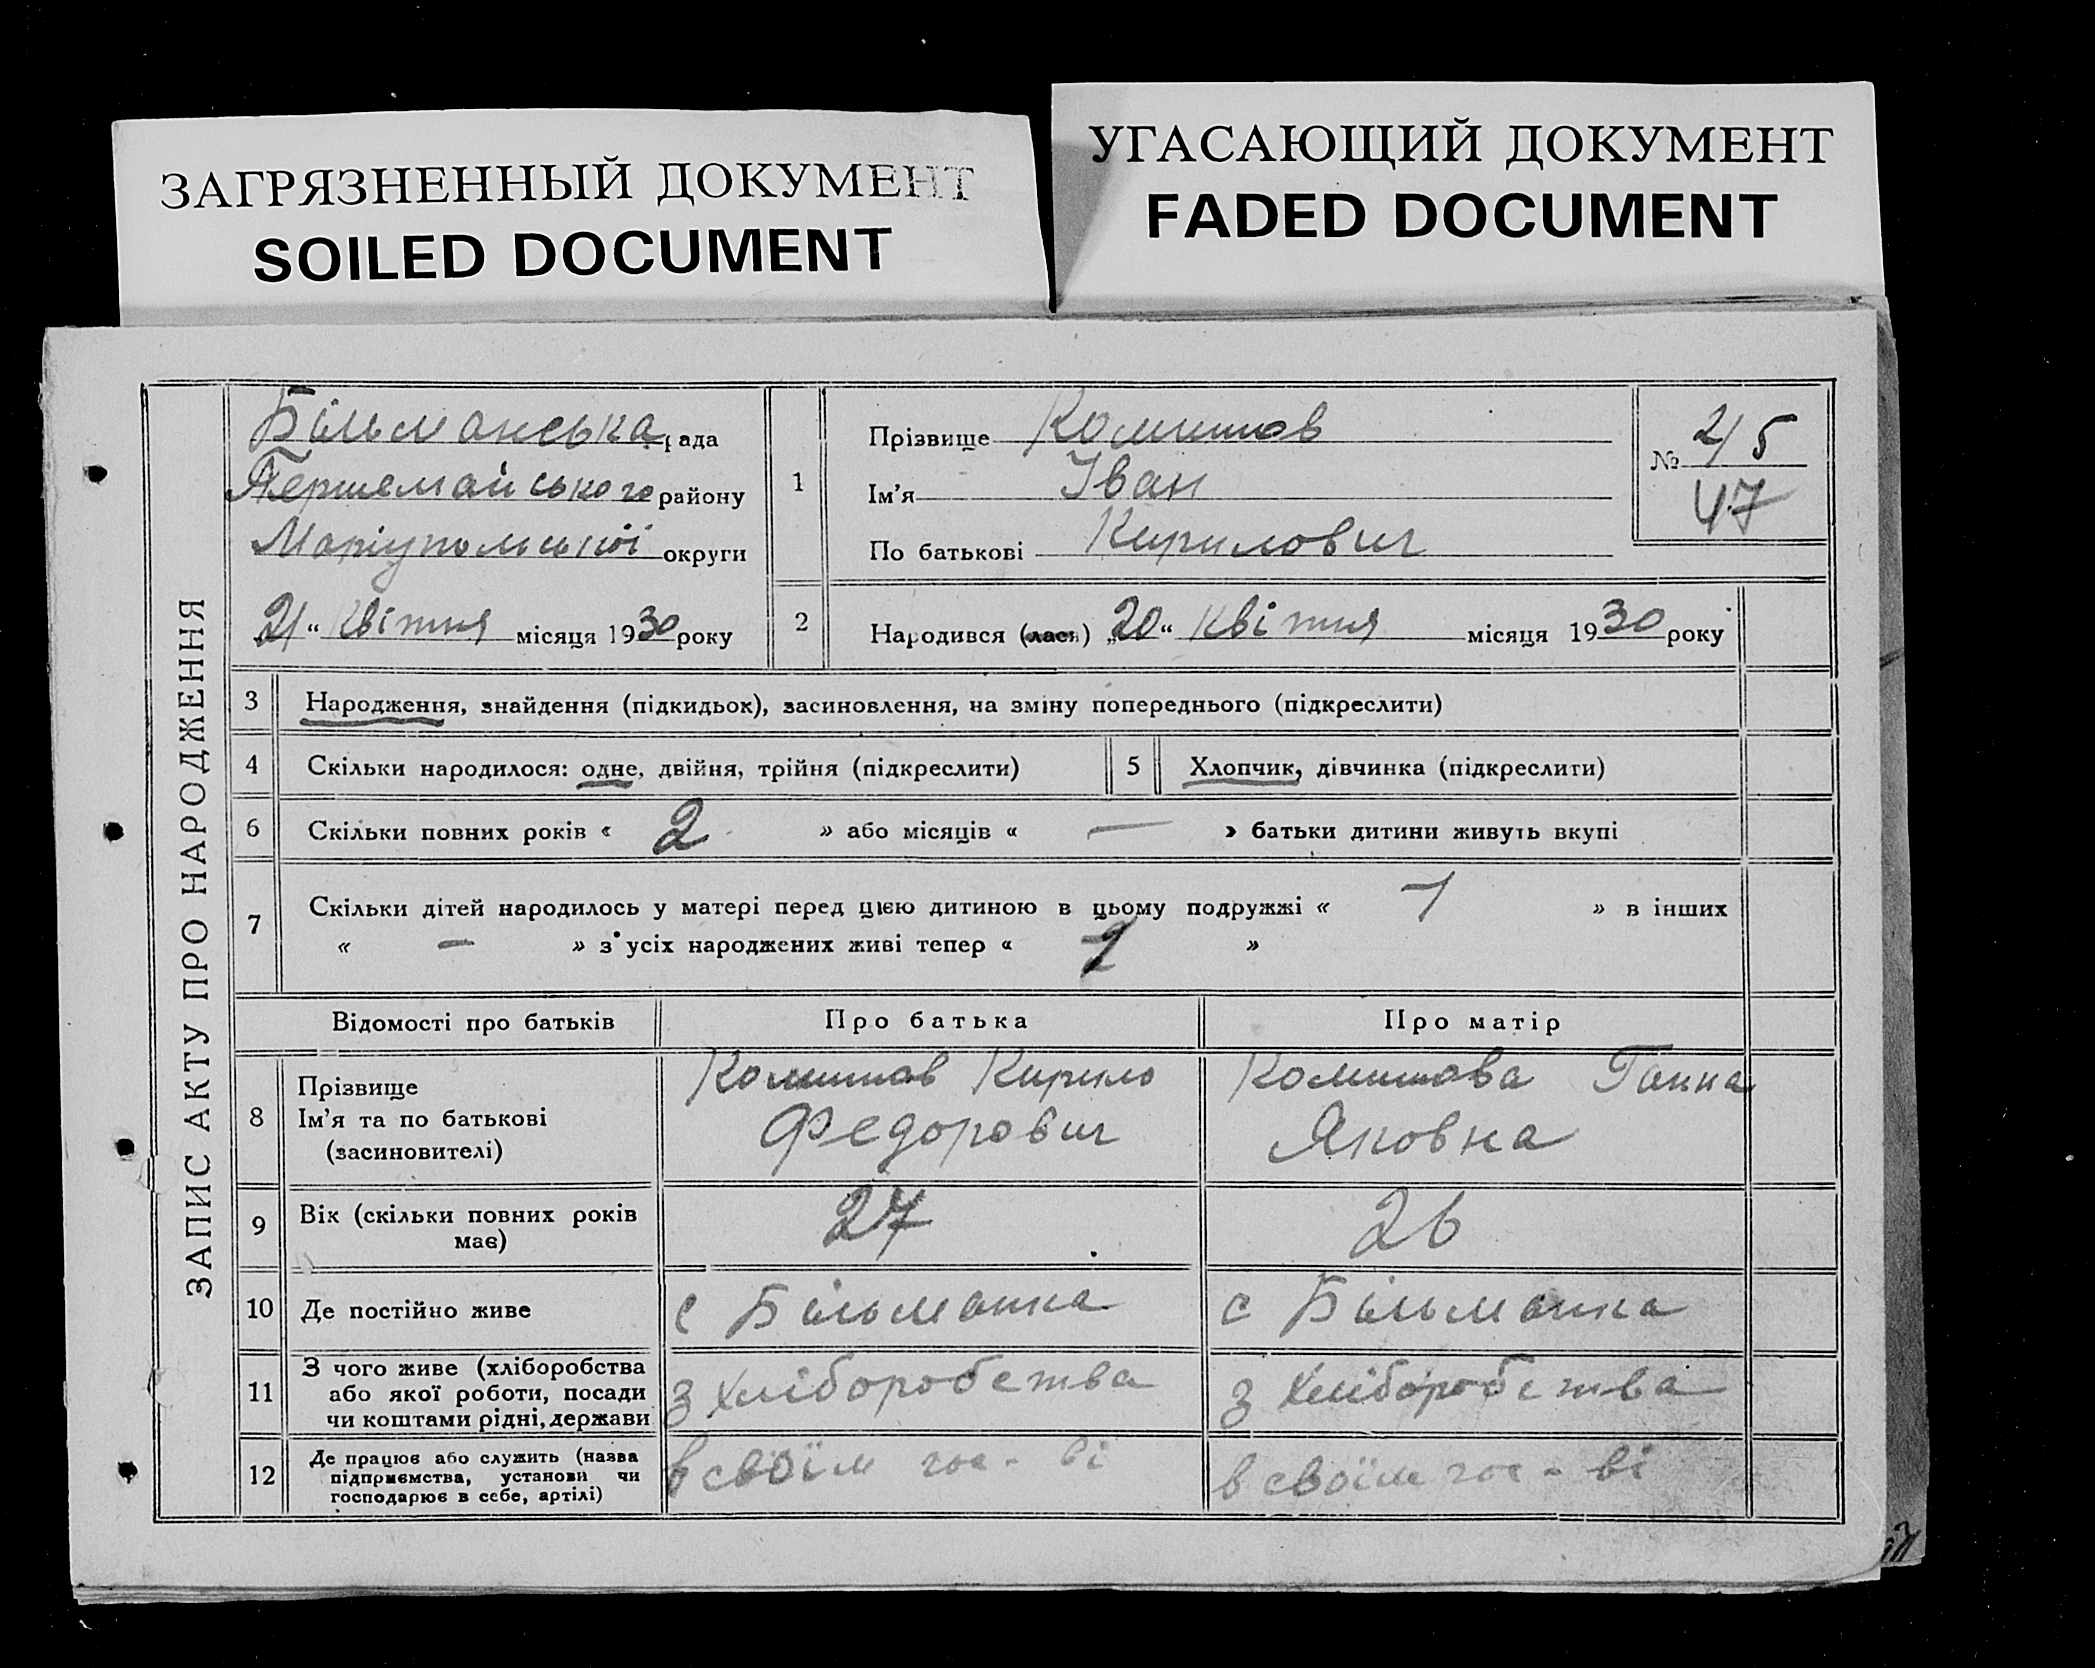 ЗАГРЯЗНЕННЫЙ ДОКУМЕНТ
SOILED DOCUMENT
УГАСАЮЩИЙ ДОКУМЕНТ
FADED DOCUMENT
ЗАПИС АКТУ ПРО НАРОДЖЕННЯ
Більманська рада
Першемайського району
Маріупольської округи
21 “ квітня місяця 1930 року
1
Прізвище Комишов
Ім’я Іван
По батькові Кирилович
№ 215
47
2
Народився (лася) „20“ квітня місяця 1930 року
3 Народження, знайдення (підкидьок), засиновлення, на зміну попереднього (підкреслити)
4 Скільки народилося: одне, двійня, трійня (підкреслити) 5 Хлопчик, дівчинка (підкреслити)
6 Скільки повних років « 2 » або місяців « — » батьки дитини живуть вкупі
7 Скільки дітей народилось у матері перед цією дитиною в цьому подружжі « 1 » в інших
« — » з усіх народжених живі тепер « »
Відомості про батьків Про батька Про матір
8 Прізвище
Ім’я та по батькові
(засиновителі)
Комишов Кирило
Федорович
Комишова Ганна
Яковна
9 Вік (скільки повних років
має)
27 26
10 Де постійно живе с Більманка с Більманка
11 З чого живе (хліборобства
або якої роботи, посади
чи коштами рідні, держави
з хліборобства з хліборобства
12 Де працює або служить (назва
підприємства, установи чи
господарює в себе, артілі)
в своїм гос-ві в своїм гос-ві